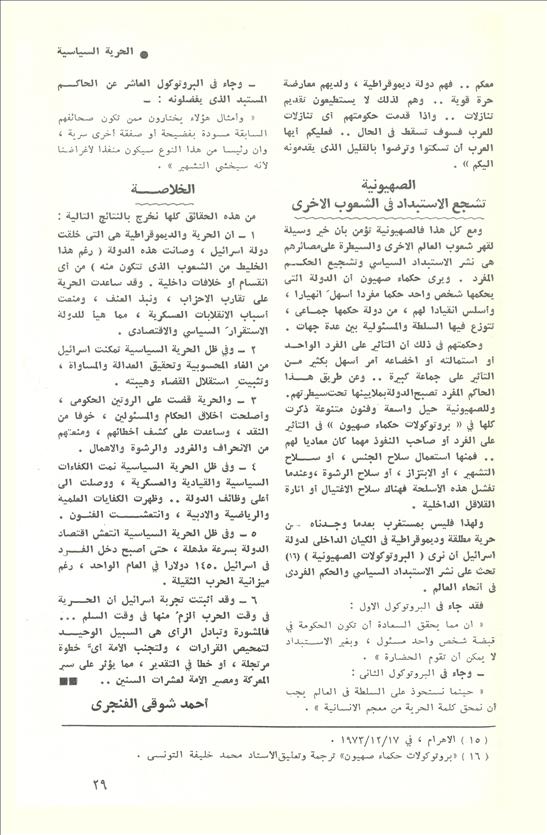 ● الحرية السياسية
معكم .. فهم دولة ديموقراطية ، ولديهم معارضة
حرة قوية .. وهم لذلك لا يستطيعون تقديم
تنازلات .. واذا قدمت حكومتهم أى تنازلات
للعرب فسوف تسقط فى الحال .. فعليكم أيها
العرب أن تسكتوا وترضوا بالقليل الذى يقدمونه
اليكم » .
الصهيونية
تشجع الاستبداد فى الشعوب الاخرى
ومع كل هذا فالصهيونية تؤمن بأن خير وسيلة
لقهر شعوب العالم الاخرى والسيطرة على مصائرهم
هى نشر الاستبداد السياسي وتشجيع الحكم
المفرد . ويرى حكماء صهيون أن الدولة التى
يحكمها شخص واحد حكما مفردا أسهل انهيارا ،
وأسلس انقيادا لهم ، من دولة حكمها جماعى ،
تتوزع فيها السلطة والمسئولية بين عدة جهات .
وحكمتهم فى ذلك أن التأثير على الفرد الواحد
أو استمالته أو اخضاعه أمر أسهل بكثير من
التأثير على جماعة كبيرة .. وعن طريق هذا
الحاكم المفرد تصبح الدولة بملايينها تحت سيطرتهم.
وللصهيونية حيل واسعة وفنون متنوعة ذكرت
كلها فى « بروتوكولات حكماء صهيون » فى التأثير
على الفرد أو صاحب النفوذ مهما كان معاديا لهم
.. فمنها استعمال سلاح الجنس ، أو سلاح
التشهير ، أو الابتزاز ، أو سلاح الرشوة ،وعندما
تفشل هذه الأسلحة فهناك سلاح الاغتيال أو اثارة
القلاقل الداخلية .
ولهذا فليس بمستغرب بعدما وجدناه من
حرية مطلقة وديموقراطية فى الكيان الداخلى لدولة
اسرائيل أن نرى ( البروتوكولات الصهيونية ) (١٦)
تحث على نشر الاستبداد السياسي والحكم الفردى
فى أنحاء العالم .
فقد جاء فى البروتوكول الاول :
« ان مما يحقق السعادة أن تكون الحكومة في
قبضة شخص واحد مسئول ، وبغير الاستبداد
لا يمكن أن تقوم الحضارة » .
ـ وجاء فى البروتوكول الثانى :
« حينما نستحوذ على السلطة فى العالم يجب
أن نمحق كلمة الحرية من معجم الانسانية » .
ـ وجاء فى البروتوكول العاشر عن الحاكم
المستبد الذى يفضلونه : ـ
« وأمثال هؤلاء يختارون ممن تكون صحائفهم
السابقة مسودة بفضيحة أو صفقة أخرى سرية ،
وان رئيسا من هذا النوع سيكون منفذا لأغراضنا
لأنه سيخشى التشهير » .
الخلاصة
من هذه الحقائق كلها نخرج بالنتائج التالية :
١ ـ ان الحرية والديموقراطية هى التى خلقت
دولة اسرائيل ، وصانت هذه الدولة ( رغم هذا
الخليط من الشعوب الذى تتكون منه ) من أى
انقسام أو خلافات داخلية . وقد ساعدت الحرية
على تقارب الاحزاب ، ونبذ العنف ، ومنعت
أسباب الانقلابات العسكرية ، مما هيأ للدولة
الاستقرار السياسي والاقتصادى .
٢ ـ وفي ظل الحرية السياسية تمكنت اسرائيل
من الغاء المحسوبية وتحقيق العدالة والمساواة ،
وتثبيت استقلال القضاء وهيبته .
٣ ـ والحرية قضت على الروتين الحكومى ،
وأصلحت أخلاق الحكام والمسئولين ، خوفا من
النقد ، وساعدت على كشف أخطائهم ، ومنعتهم
من الانحراف والغرور والرشوة والاهمال .
٤ ـ وفى ظل الحرية السياسية نمت الكفاءات
السياسية والقيادية والعسكرية ، ووصلت الى
أعلى وظائف الدولة .. وظهرت الكفايات العلمية
والرياضية والادبية ، وانتعشت الفنون .
٥ ـ وفى ظل الحرية السياسية انتعش اقتصاد
الدولة بسرعة مذهلة ، حتى أصبح دخل الفرد
فى اسرائيل ١٤٥٠ دولارا في العام الواحد ، رغم
ميزانية الحرب الثقيلة .
٦ ـ وقد أثبتت تجربة اسرائيل أن الحرية
فى وقت الحرب ألزم منها فى وقت السلم ...
فالمشورة وتبادل الرأى هى السبيل الوحيد
لتمحيص القرارات ، ولتجنب الأمة أى خطوة
مرتجلة ، أو خطأ في التقدير ، مما يؤثر على سير
المعركة ومصير الأمة لعشرات السنين ..
أحمد شوقى الفنجرى
( ١٥ ) الاهرام ، في ١٩٧٣/١٢/١٧ .
( ١٦ ) «بروتوكولات حكماء صهيون» ترجمة وتعليق الاستاد محمد خليفة التونسى .
٢٩